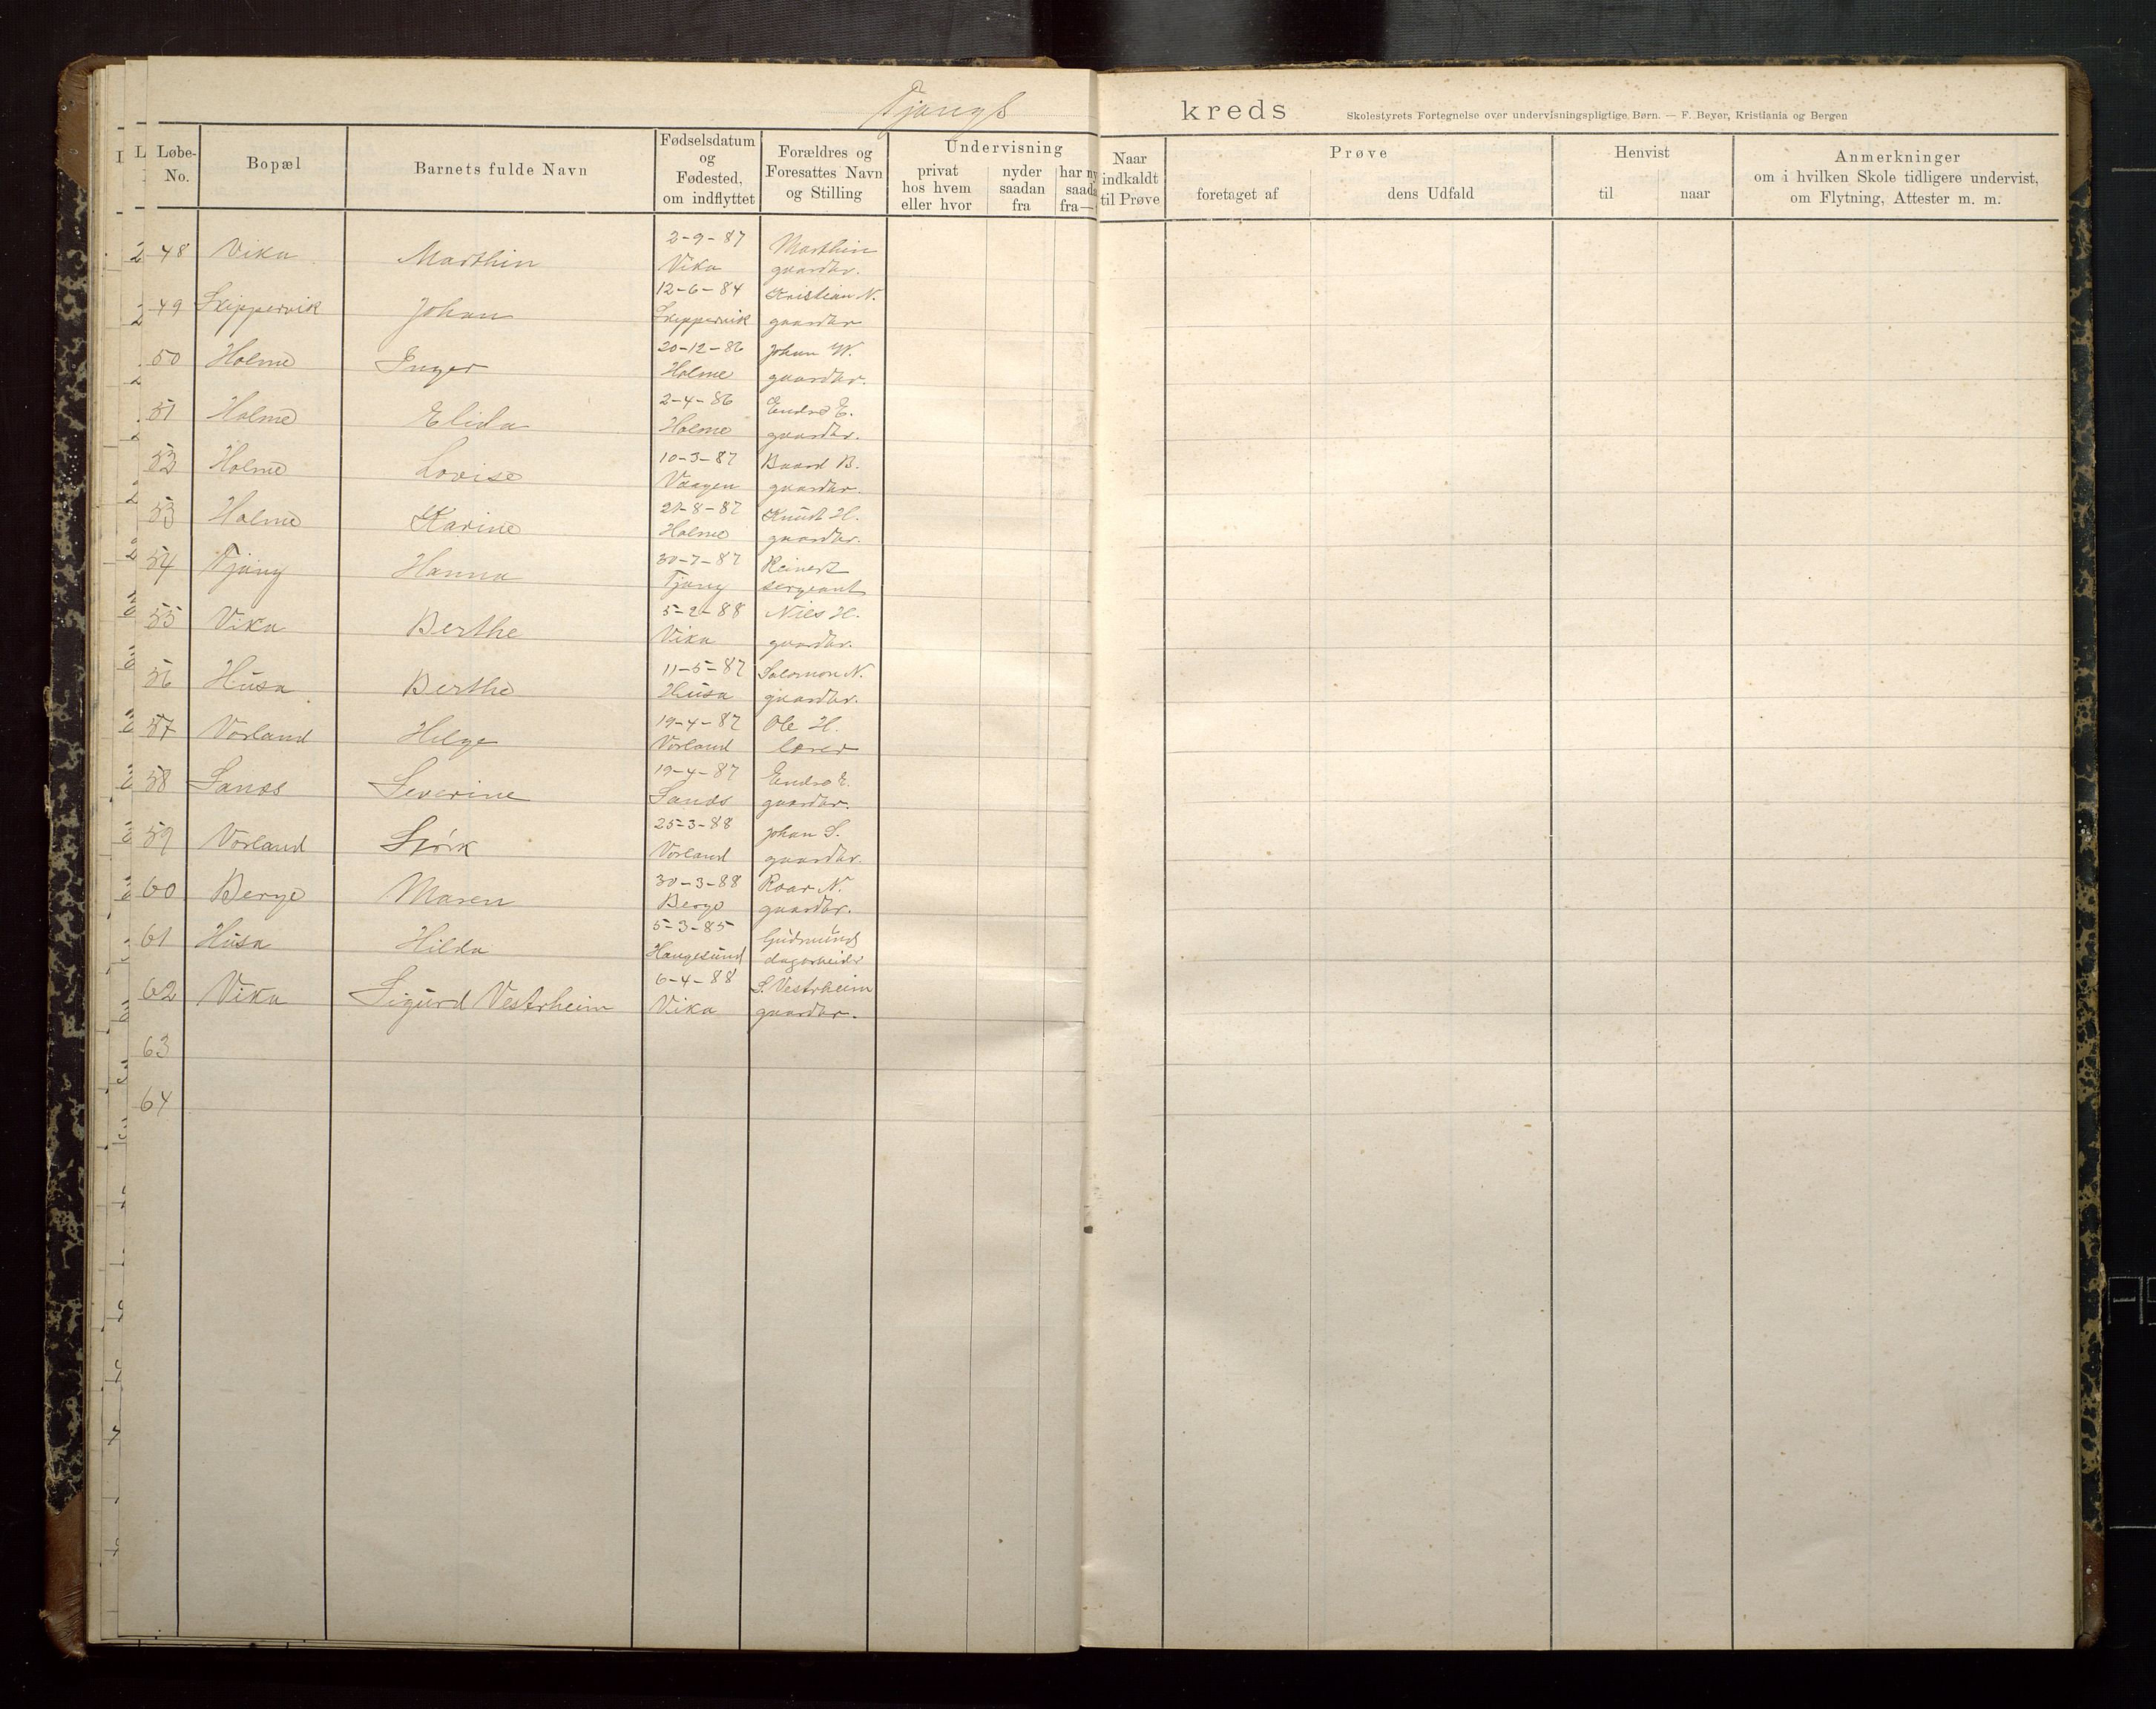 Tjongs kreds
Skolestyrets Fortegnelse over undervisningspligtige Børn. — F. Beyer, Kristiania og Bergen
Løbe-No. Bopæl Barnets fulde Navn Fødselsdatum og Fødested, om indflyttet Forældres og Foresattes Navn og Stilling Undervisning privat hos hvem eller hvor nyder saadan fra har ny saada fra— Naar indkaldt til Prøve Prøve foretaget af dens Udfald Henvist til naar Anmerkninger om i hvilken Skole tidligere undervist, om Flytning, Attester m. m.
48 Vika Marthin 2-9-87 Vika Marthin gaardbr.
49 Skippervik Johan 12-6-84 Skippervik Kristian N. gaardbr
50 Holme Inger 20-12-86 Holme Johan W. gaardbr.
51 Holme Elida 2-4-86 Holme Endre E. gaardbr.
52 Holme Lovise 10-3-87 Vaagen Baard B. gaardbr.
53 Holme Karine 21-8-87 Holme Knut H. gaardbr.
54 Tjong Hanna 30-7-87 Tjong Reinert sergeant
55 Vika Berthe 5-2-88 Vika Nils H. gaardbr.
56 Husa Berthe 11-5-87 Husa Salomon N. gaardbr.
57 Vorland Helge 19-4-87 Vorland Ole H. lærer
58 Sands Severine 19-4-87 Sands Endre E. gaardbr.
59 Vorland Sjørk 25-3-88 Vorland Johan S. gaardbr.
60 Berge Maren 30-3-88 Berge Roar N. gaardbr.
61 Husa Hilda 5-3-85 Haugesund Gudmund dagarbeider
62 Vika Sigurd Vestrheim 6-4-88 Vika S. Vestrheim gaardbr.
63
64